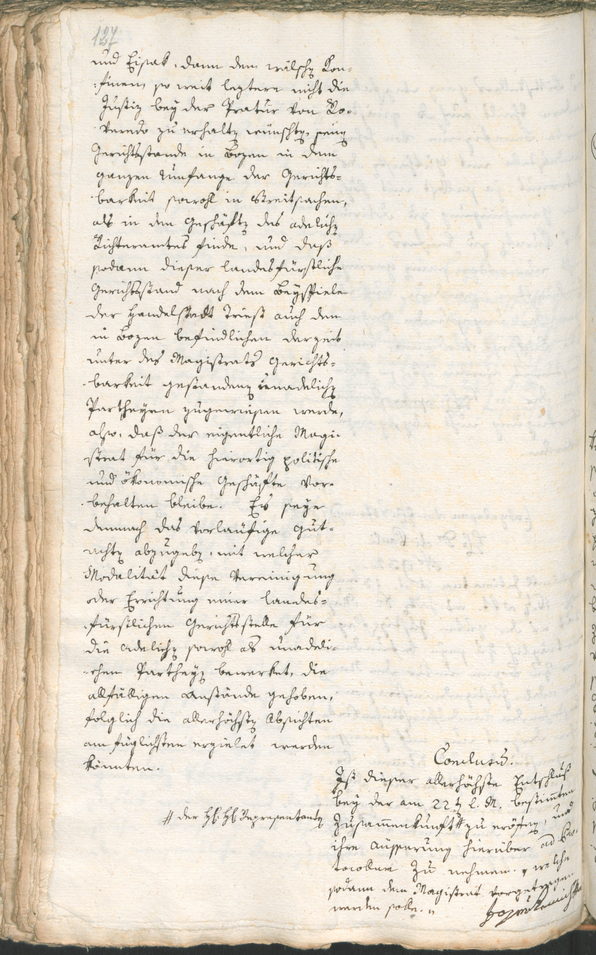 127
und Eisak, dann den wälschen Con-
finen, so weit leztere nicht die
Justiz bey der Pratur von Ro-
veredo zu erhalten wünschten, seine
Gerichtsstande in Bozen in dem
ganzen Umfange der Gerichts-
barkeit sowohl in Streitsachen,
als in den Geschäften des adelichen
Richteramtes finde, und daß
sodann dieser landesfürstliche
Gerichtsstand nach dem Beyspiele
der Handelstadt Triest auch den
in Bozen befindlichen derzeit
unter des Magistrats Gerichts-
barkeit gestandenen unadelichen
Partheyen zugewiesen werde,
also, daß der eigentliche Magi-
strat für die hierortig politische
und ökonomische Geschäfte vor-
behalten bleibe. Es seye
demnach das vorläufige Gut-
achten abzugeben, mit welcher
Modalität diese Vereinigung
oder Errichtung einer landes-
fürstlichen Gerichtsstelle für
die adelichen sowohl als unadeli-
chen Partheyen bewerket, die
allfälligen Anstände gehoben,
folglich die allerhöchsten Absichten
am füglichsten erzielet werden
könnten.
Conclusum.
Ist dieser allerhöchste Entschluß
bey der am 22ten l. M. bestimten
Zusammenkunft # zu eröfnen, und
# der HH. HH. Repräsentanten
ihre Äusserung hierüber ad
zu nehmen, welche
sodann dem Magistrat vorgetragen
werden solle.